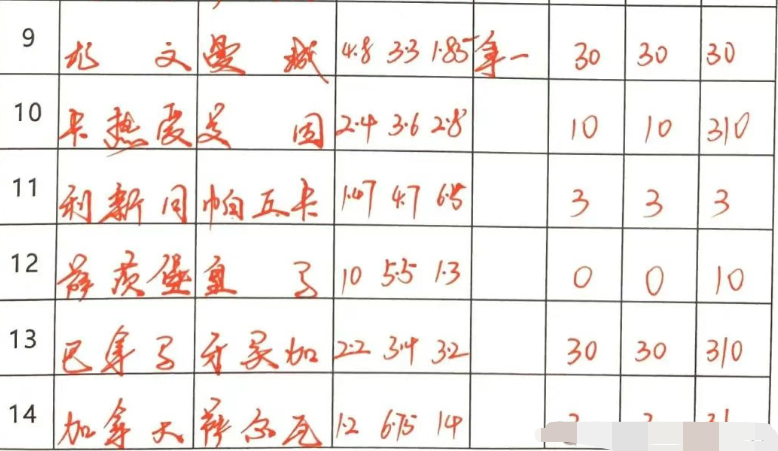 9 尤 文 曼 城 4.8 3.3 1.85 拿一 30 30 30
10 卡热 爱 美 固 2.4 3.6 2.8 10 10 310
11 利新 同 帕五卡 1.47 4.7 6.5 3 3 3
12 萨茨堡 皇 马 10 5.5 1.3 0 0 10
13 巴拿马 牙买加 2.2 3.4 3.2 30 30 310
14 加拿大 萨尔瓦 1.2 6.75 14